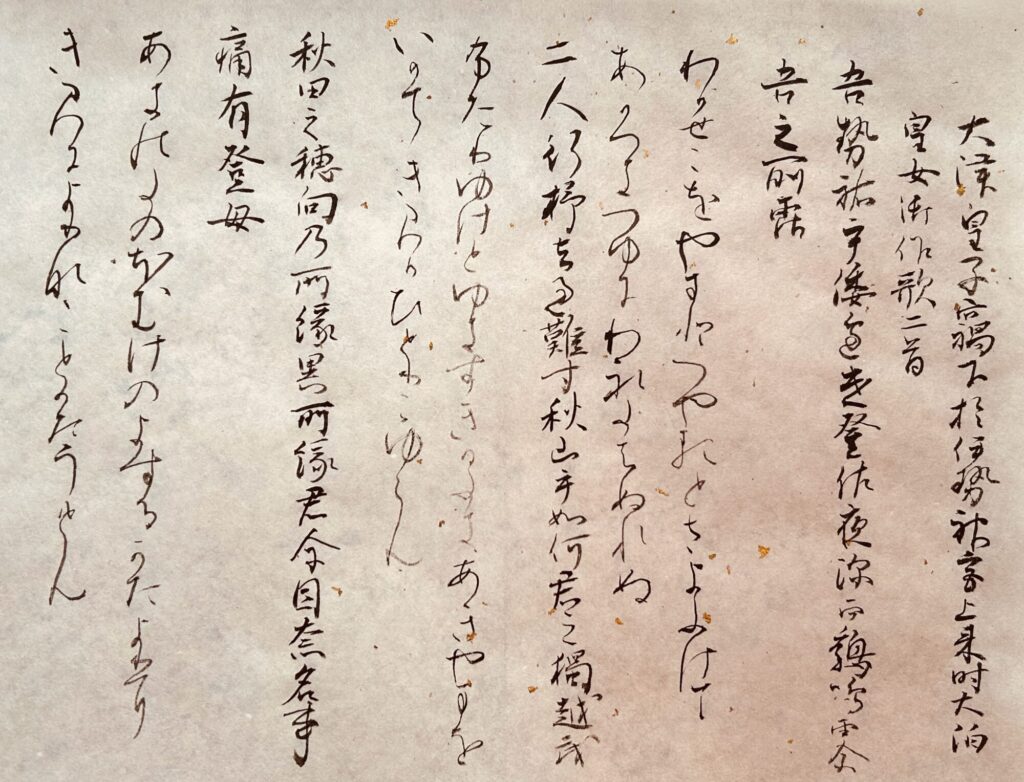 大津皇子竊下於伊勢神宮上来時大泊
皇女御作歌二首
吾勢祜乎倭邊遣登佐夜深而鷄鳴露尓
吾立所霑
わかせこをやまとへやるとさよふけて
あかつきつゆにわれたちぬれぬ
二人行杼去過難寸秋山乎如何君之獨越武
ふたりゆけとゆきすきかたきあきやまを
いかてかきみかひとりこゆらん
秋田之穂向乃所縁異所縁君尓因奈名事
痛有登母
あきのたのほむけのよするかたよりに
きみによりなゝ